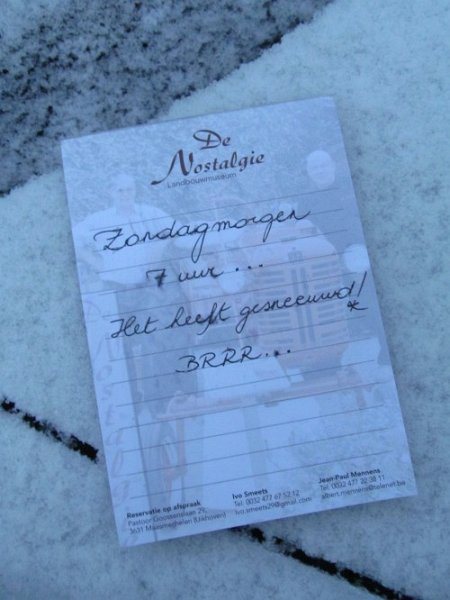 De
Nostalgie
Landbouwmuseum
Zondagmorgen
7 uur ...
Het heeft gesneeuwd!
*
BRRR...
Reservatie op afspraak
Pastoor Goossenslaan 29,
3631 Maasmechelen (Uikhoven)
Ivo Smeets
Tel. 0032 477 67 52 12
ivo.smeets29@gmail.com
Jean-Paul Mennens
Tel. 0032 471 22 38 11
albert.mennens@telenet.be